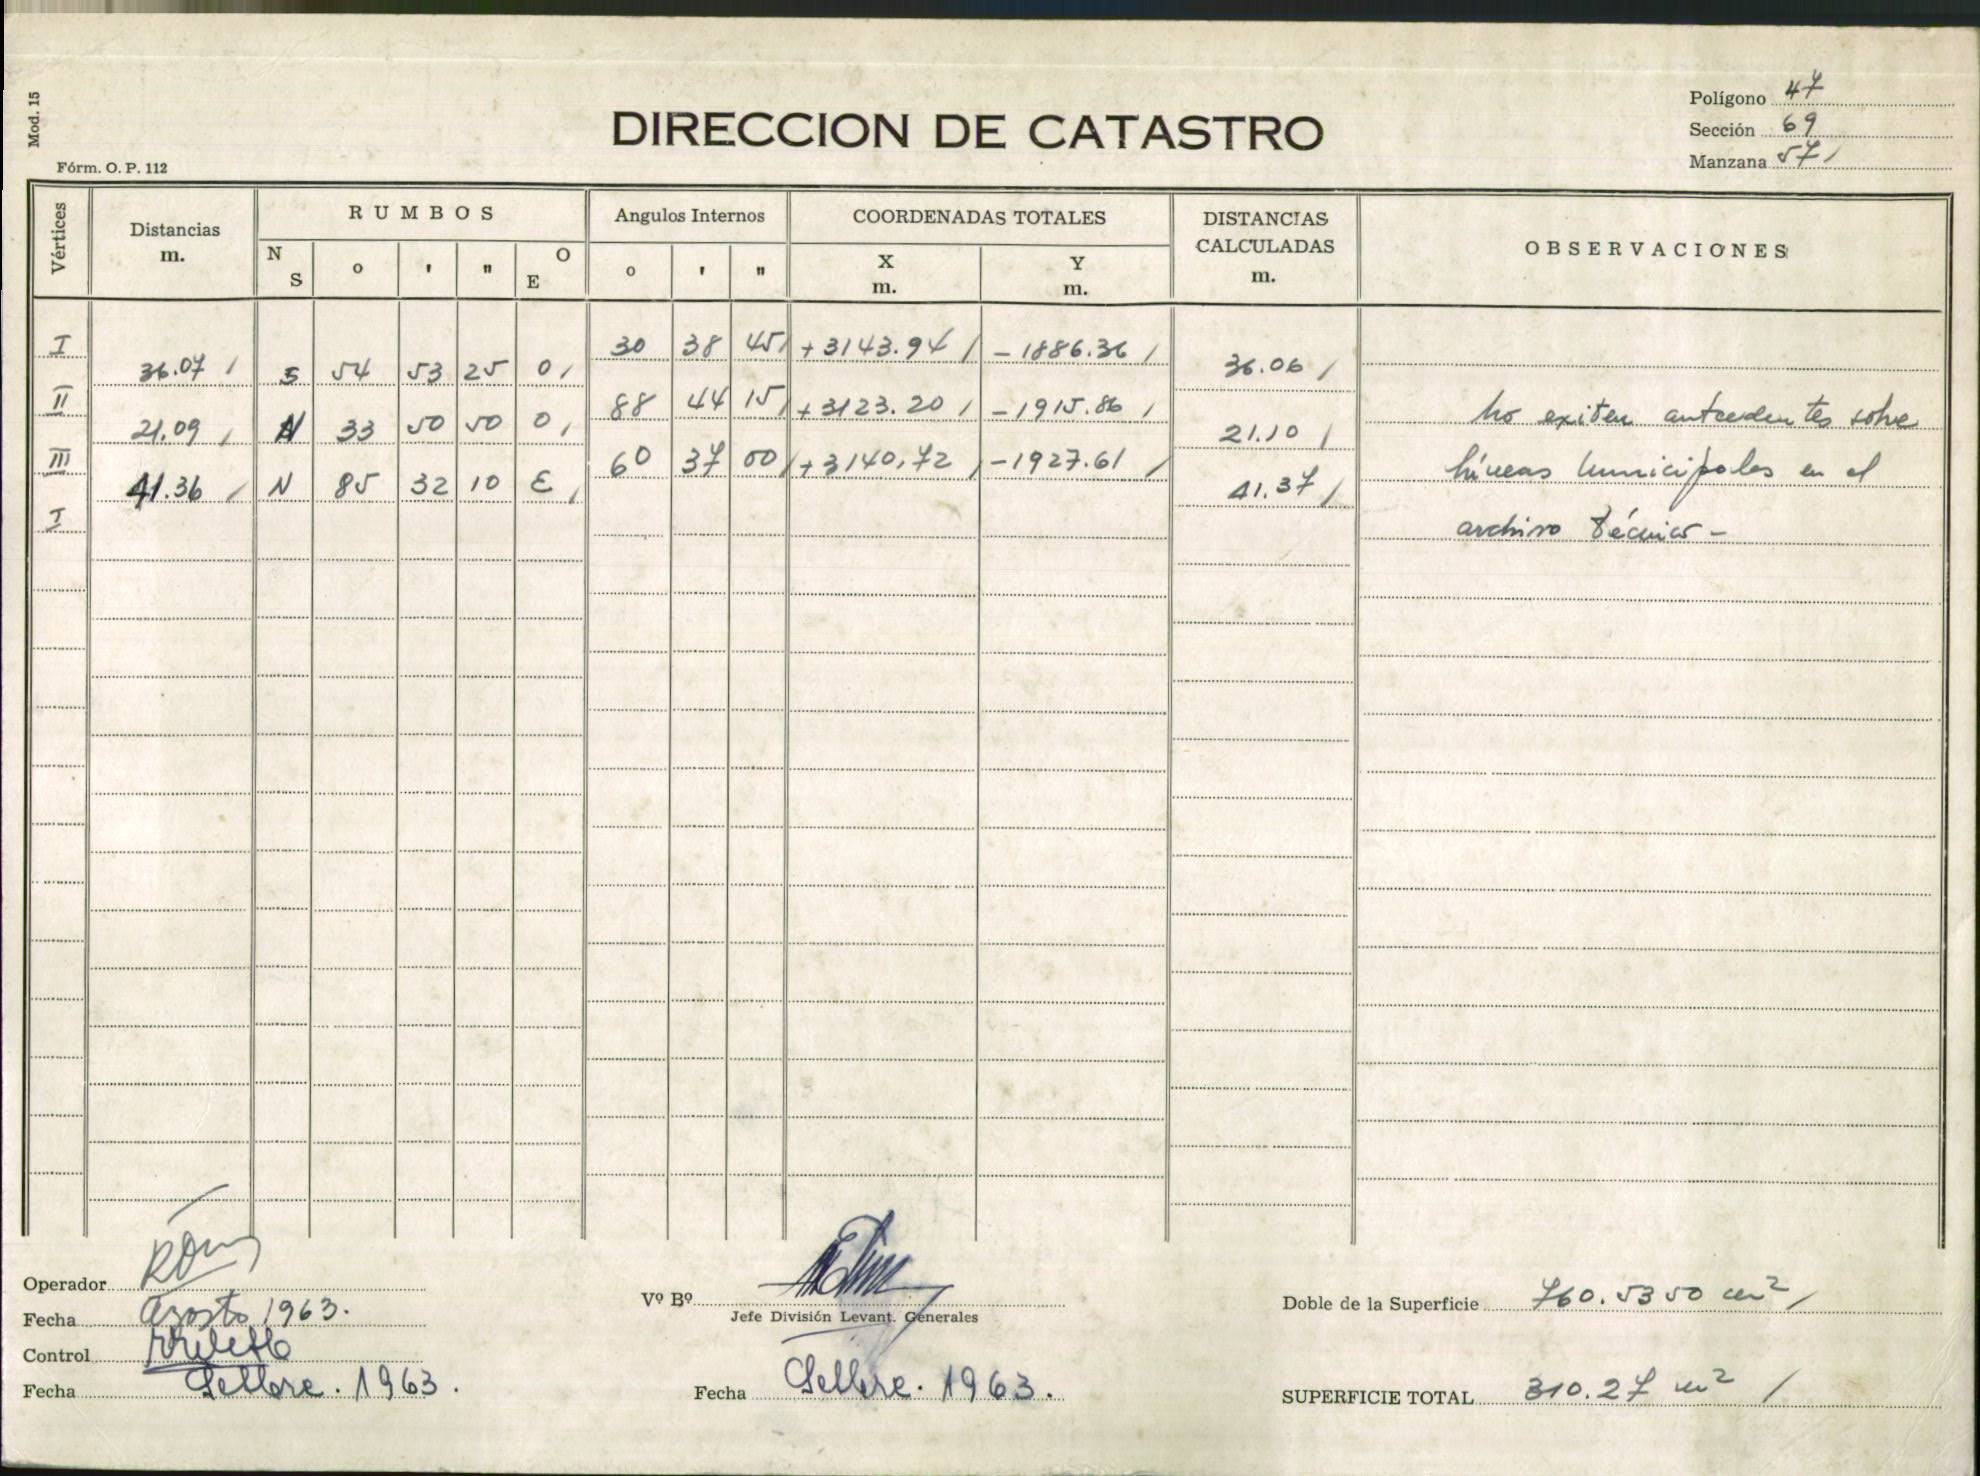 Mod. 15
Fórm. O. P. 112
DIRECCION DE CATASTRO
Polígono 47
Sección 69
Manzana 57 /
Vértices
Distancias m.
RUMBOS
N S ° ' " O E
Angulos Internos
° ' "
COORDENADAS TOTALES
X m.
Y m.
DISTANCIAS CALCULADAS m.
OBSERVACIONES
I 30 38 45 / +3143.94 / -1886.36 /
36.07 / S 54 53 25 O / 36.06 /
II 88 44 15 / +3123.20 / -1915.86 /
21.09 / N 33 50 50 O / 21.10 /
III 60 37 00 / +3140,72 / -1927.61 /
41.36 / N 85 32 10 E / 41.37 /
I
No exiten antecedentes sobre
líneas municipales en el
archivo técnico -
Operador
Fecha Agosto 1963.
Control
Fecha Setbre. 1963.
Vº Bº
Jefe División Levant. Generales
Fecha Setbre. 1963.
Doble de la Superficie 760.5350 m² /
SUPERFICIE TOTAL 310.27 m² /